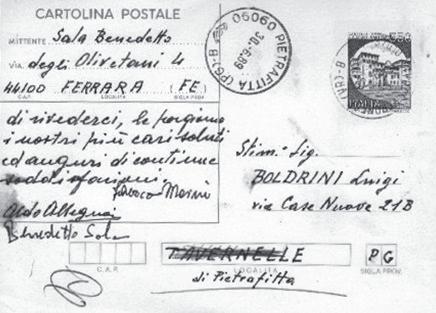 CARTOLINA POSTALE
MITTENTE Sala Benedetto
VIA degli Olivetani 4
44100 FERRARA (FE)
C.A.P. LOCALITÀ SIGLA PROV.
06060 PIETRAFITTA (PG) - B
30.6.89
di rivederci, le porgiamo
i nostri più cari saluti
ed auguri di continue
soddisfazioni.
Aldo
Benedetto Sala
Stim. Sig.
BOLDRINI Luigi
via Case Nuove 21B
TAVERNELLE PG
C.A.P. LOCALITÀ SIGLA PROV.
di Pietrafitta